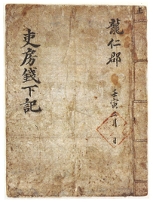 龍仁郡
壬寅二月 日
吏房錢下記